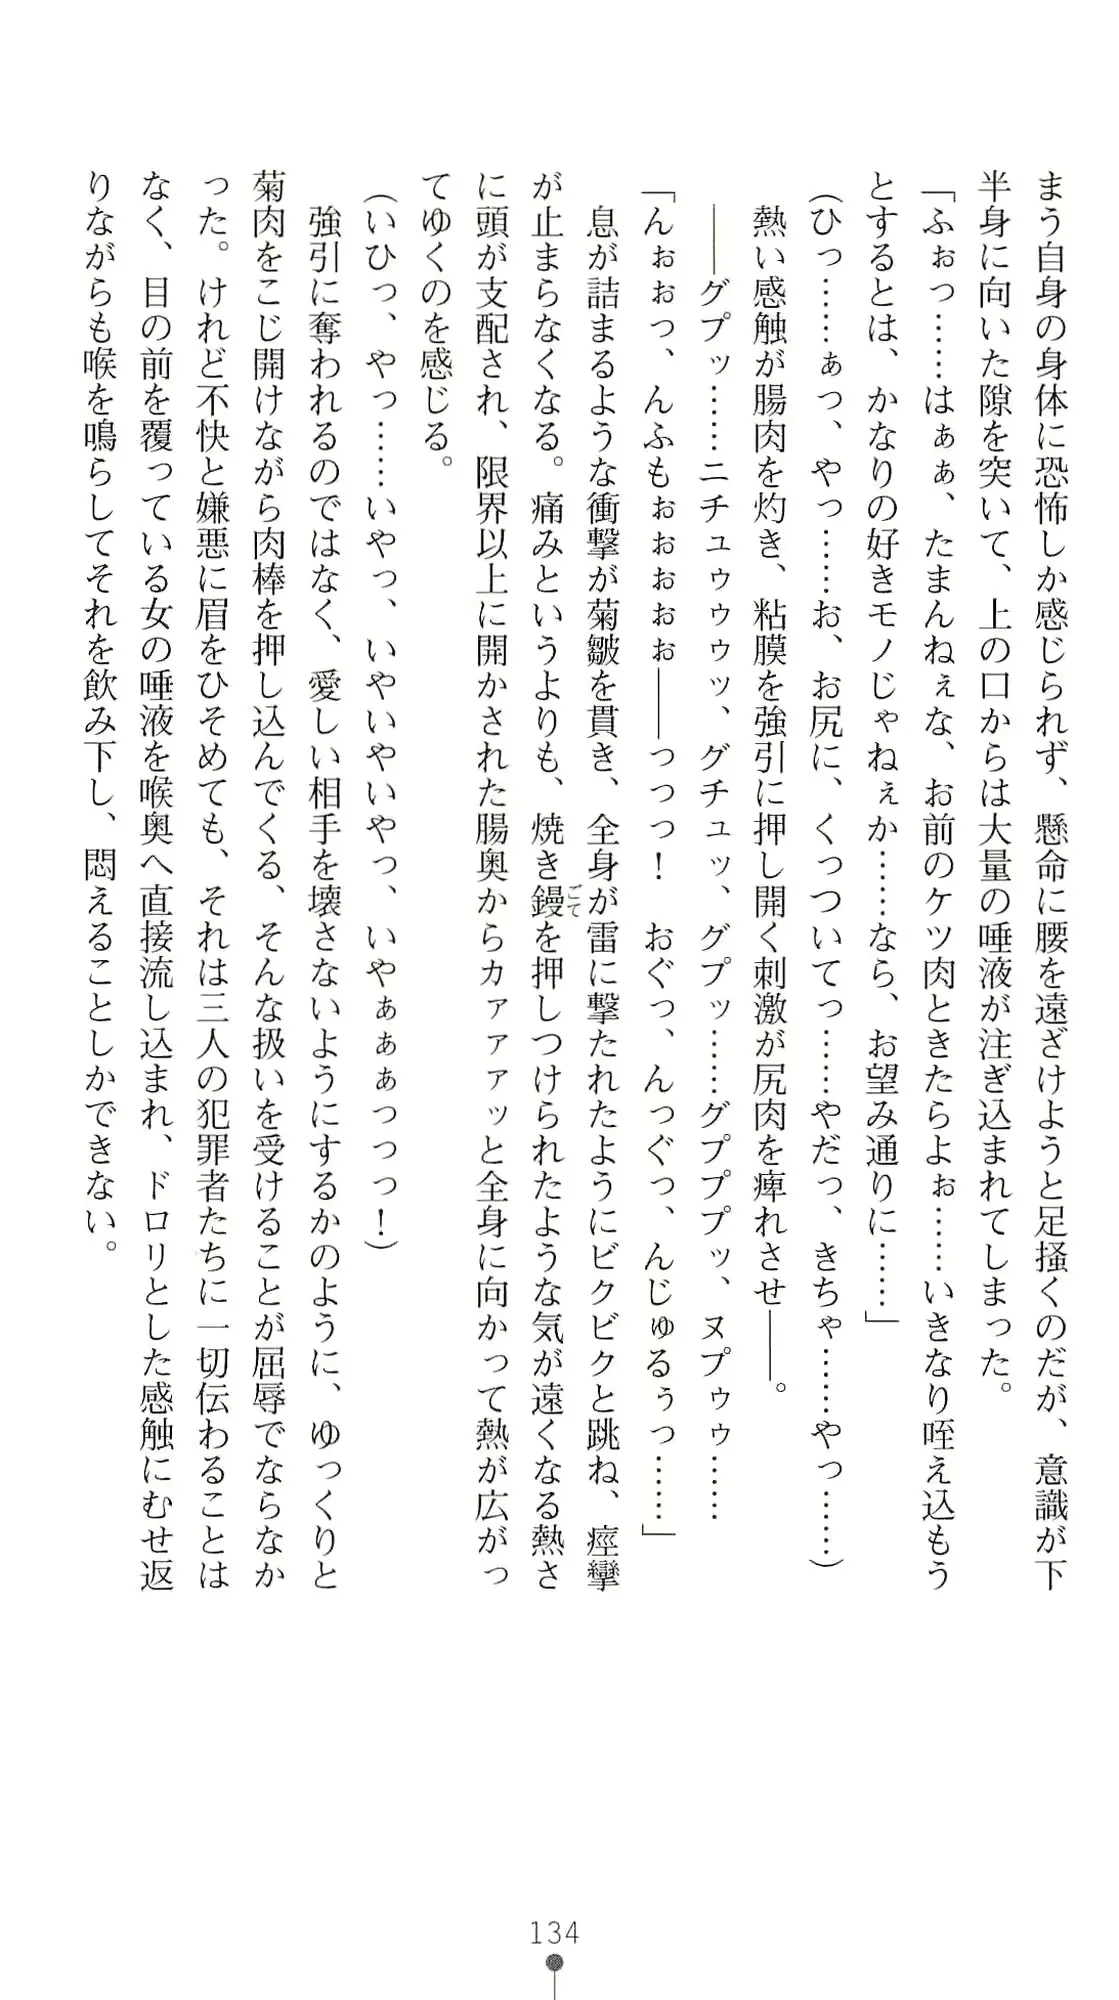 まう自身の身体に恐怖しか感じられず、懸命に腰を遠ざけようと足掻くのだが、意識が下
半身に向いた隙を突いて、上の口からは大量の唾液が注ぎ込まれてしまった。
「ふぉっ……はぁぁ、たまんねぇな、お前のケツ肉ときたらよぉ……いきなり咥え込もう
とするとは、かなりの好きモノじゃねぇか……なら、お望み通りに……」
（ひっ……ぁっ、やっ……お、お尻に、くっついてっ……やだっ、きちゃ……やっ……）
熱い感触が腸肉を灼き、粘膜を強引に押し開く刺激が尻肉を痺れさせ――。
――グプッ……ニチュゥゥッ、グチュッ、グプッ……グププッ、ヌプゥゥ……
「んぉぉっ、んふもぉぉぉぉ――っっっ！　おぐっ、んっぐっ、んじゅるぅっ……」
息が詰まるような衝撃が菊皺を貫き、全身が雷に撃たれたようにビクビクと跳ね、痙攣
が止まらなくなる。痛みというよりも、焼き鏝ごてを押しつけられたような気が遠くなる熱さ
に頭が支配され、限界以上に開かされた腸奥からカァァァッと全身に向かって熱が広がっ
てゆくのを感じる。
（いひっ、やっ……いやっ、いやいやいやっ、いやぁぁぁっっっ！）
強引に奪われるのではなく、愛しい相手を壊さないようにするかのように、ゆっくりと
菊肉をこじ開けながら肉棒を押し込んでくる、そんな扱いを受けることが屈辱でならなか
った。けれど不快と嫌悪に眉をひそめても、それは三人の犯罪者たちに一切伝わることは
なく、目の前を覆っている女の唾液を喉奥へ直接流し込まれ、ドロリとした感触にむせ返
りながらも喉を鳴らしてそれを飲み下し、悶えることしかできない。
134